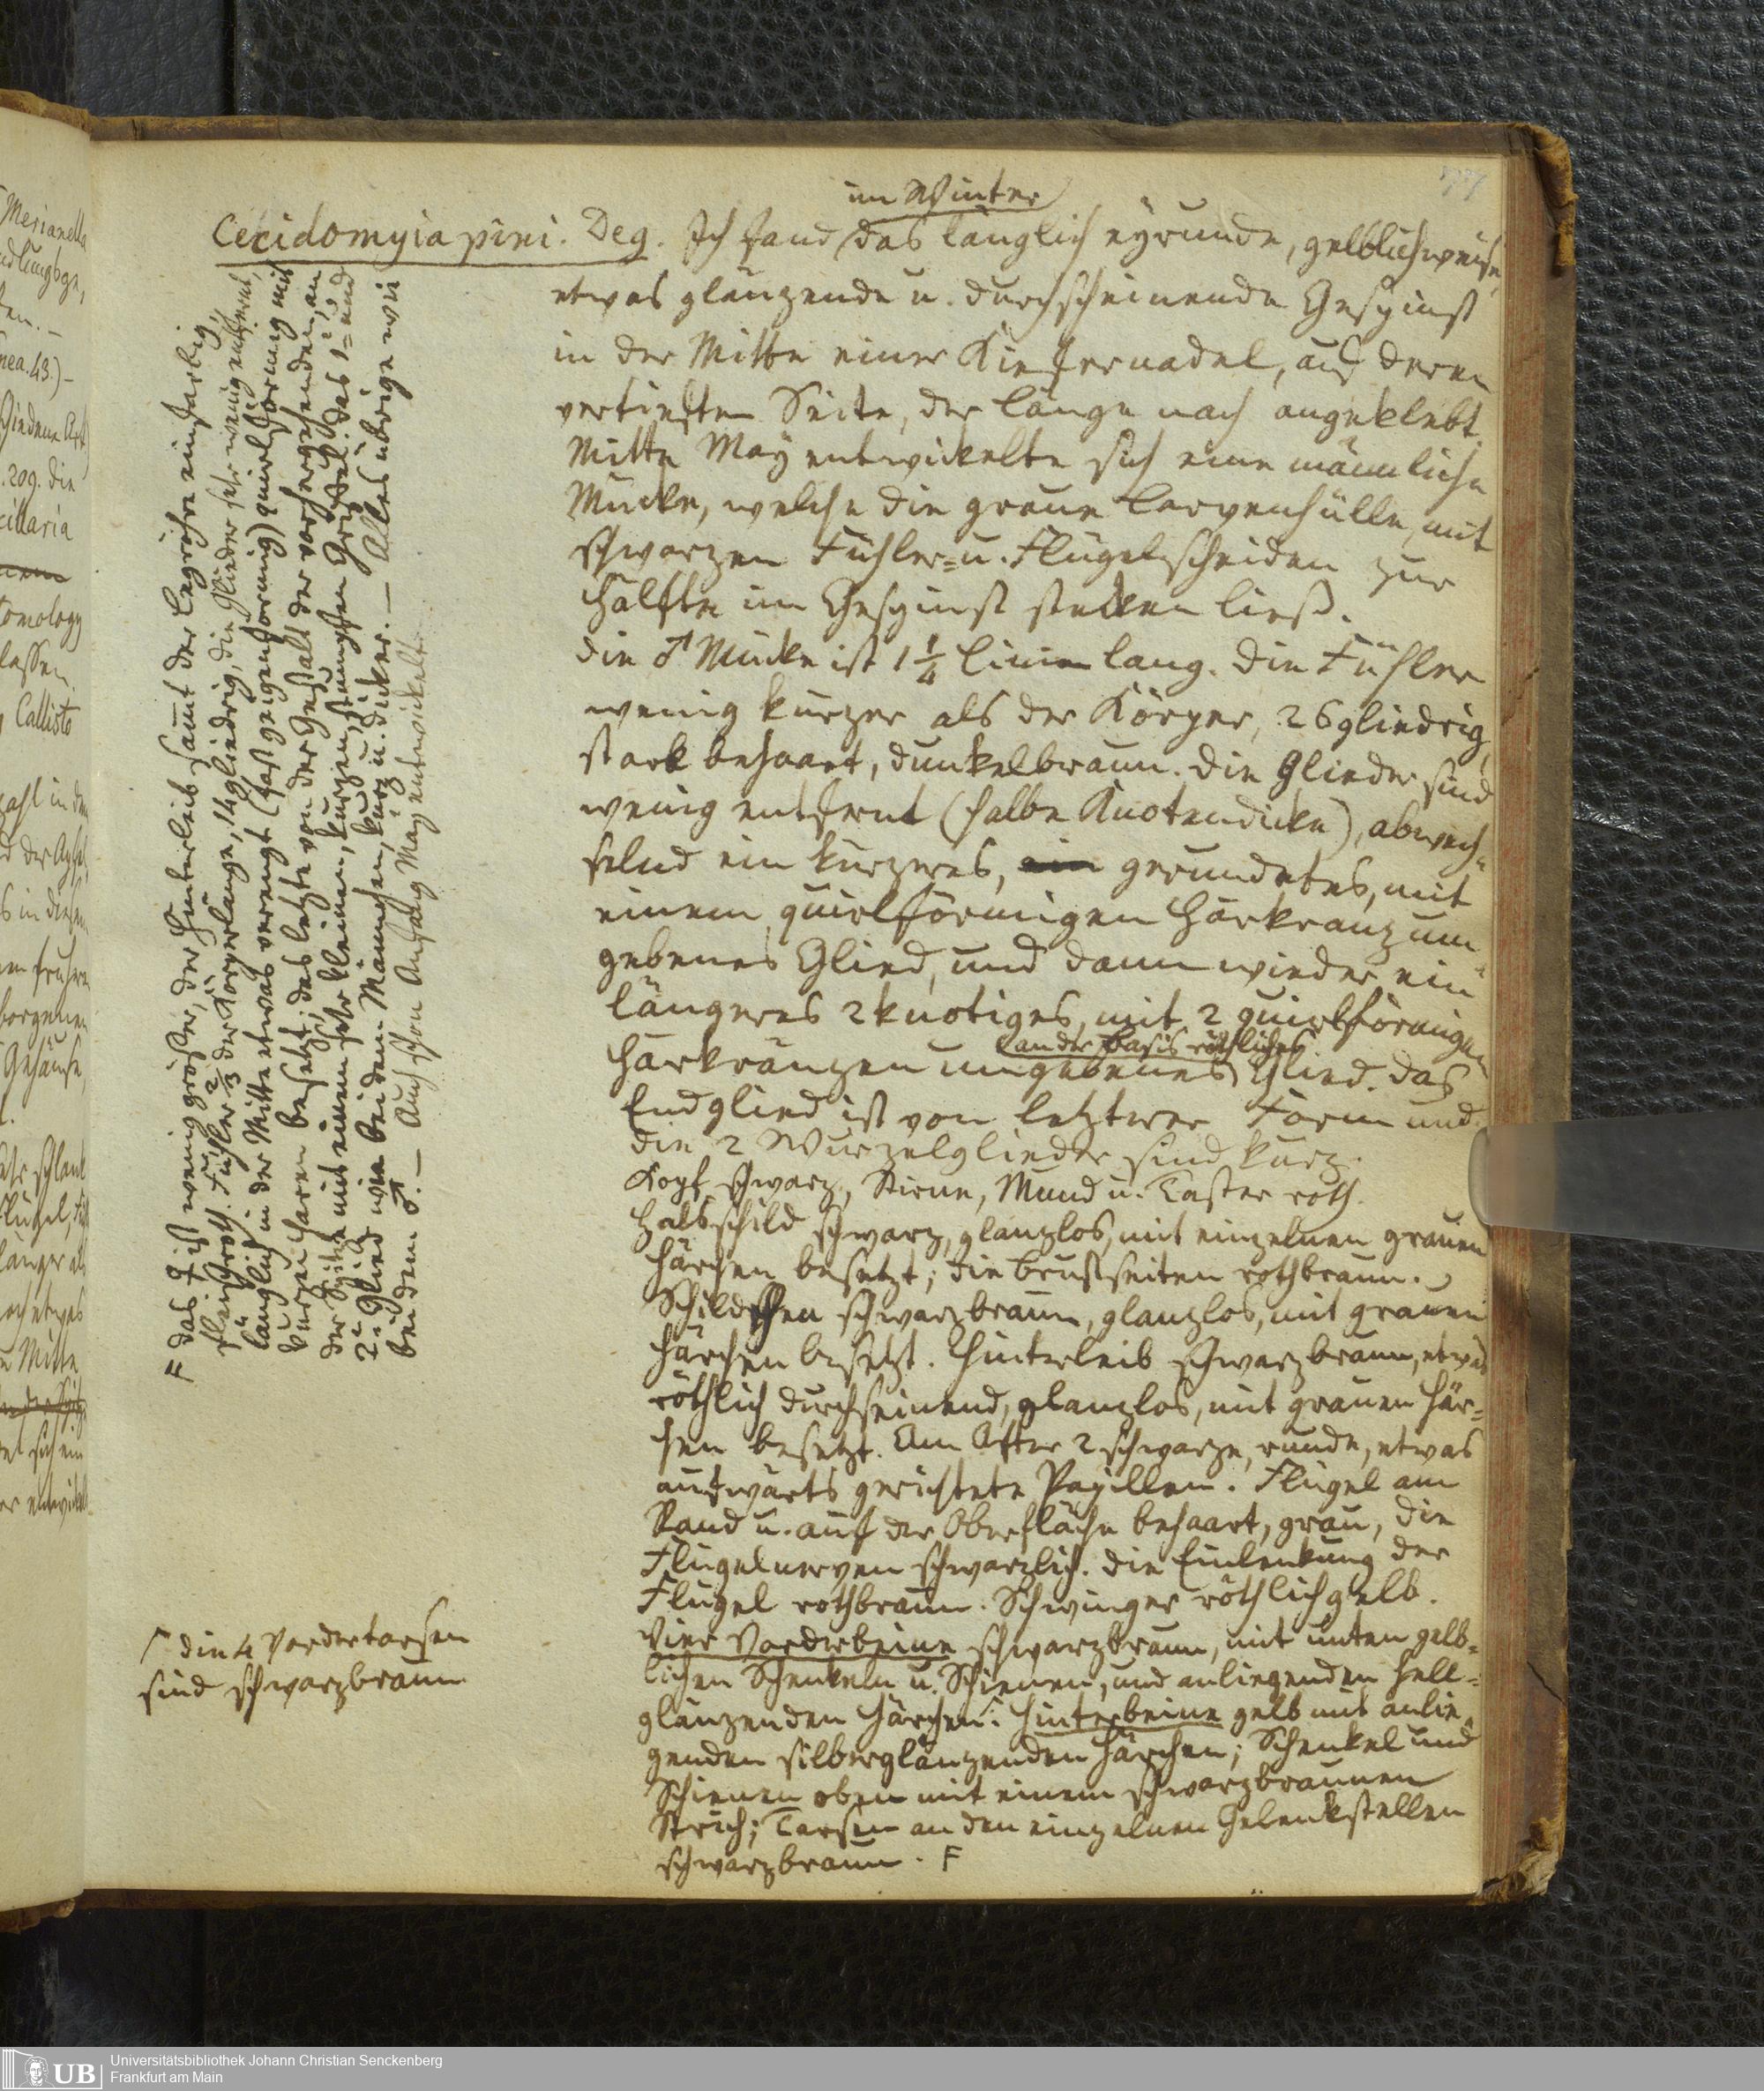 im Winter
Cecidomyia pini. Deg. Ich fand das länglich eyrunde, gelblichweise,
etwas glänzende u. durchscheinende Gespinst
in der Mitte einer Kiefernadel, auf deren
vertieften Seite, der Länge nach angeklebt.
Mitte May entwickelte sich eine männliche
Mücke, welche die graue Larvenhülle, mit
schwarzen Fühler- u. Flügelscheiden zur
Hälfte im Gespinst stecken ließ.
Die ♂ Mücke ist 1 1/4 Linien lang. Die Fühler
wenig kürzer als der Körper, 26gliedrig,
stark behaart, dunkelbraun. Die Glieder sind
wenig entfernt (halbe Knotendicke), abwech-
selnd ein kürzeres, gerundetes, mit
einem quirlförmigen Härkranz um-
gebenes Glied, und dann wieder ein
längeres 2knotiges, mit 2 quirlförmigen
an der Basis röthliches
Härkränzen umgebenes Glied. Das
Endglied ist von letztrer Form und
die 2 Wurzelglieder sind kurz.
Kopf schwarz, Stirne, Mund u. Taster roth.
Halsschild schwarz, glanzlos, mit einzelnen grauen
Härchen besetzt; die Brustseiten rothbraun.
Schildchen schwarzbraun, glanzlos, mit grauen
Härchen besetzt. Hinterleib schwarzbraun, etwas
röthlich durchscheinend, glanzlos, mit grauen Här-
chen besetzt. Am After 2 schwarze, runde, etwas
aufwärts gerichtete Papillen. Flügel am
Rand u. auf der Oberfläche behaart, grau, die
Flügelnerven schwarzlich. Die Einlenkung der
Flügel rothbraun. Schwinger röthlichgelb.
Vier Vorderbeine schwarzbraun, mit unten gelb-
lichen Schenkeln u. Schienen, und anliegenden hell-
glänzenden Härchen. Hinterbeine gelb mit anlie-
genden silberglänzenden Härchen; Schenkel und
Schienen oben mit einem schwarzbraunen
Strich; Tarsen an den einzelnen Gelenkstellen
schwarzbraun. F
Γ die 4 Vordertarsen
sind schwarzbraun
F Das ♀ ist wenig größer, der Hinterleib sammt der Legröhre einfarbig,
fleischroth. Fühler 2/3 der Körperlänge, 14gliedrig, die Glieder sehr wenig entfernt,
länglich in der Mitte etwas verengt (fast geigenförmig) quirlförmig mit
kurzen Haren besetzt; das letzte von der Gestalt der vorhergehenden, an
der Spitze mit einem sehr kleinen, kurzen, stumpfen Griffel. Das 1= und
2= Glied wie bei dem Männchen, kurz u. dicker. — Alles übrige wie
bei dem ♂. — Auch schon Anfang May entwickelt.
Universitätsbibliothek Johann Christian Senckenberg
Frankfurt am Main
UB